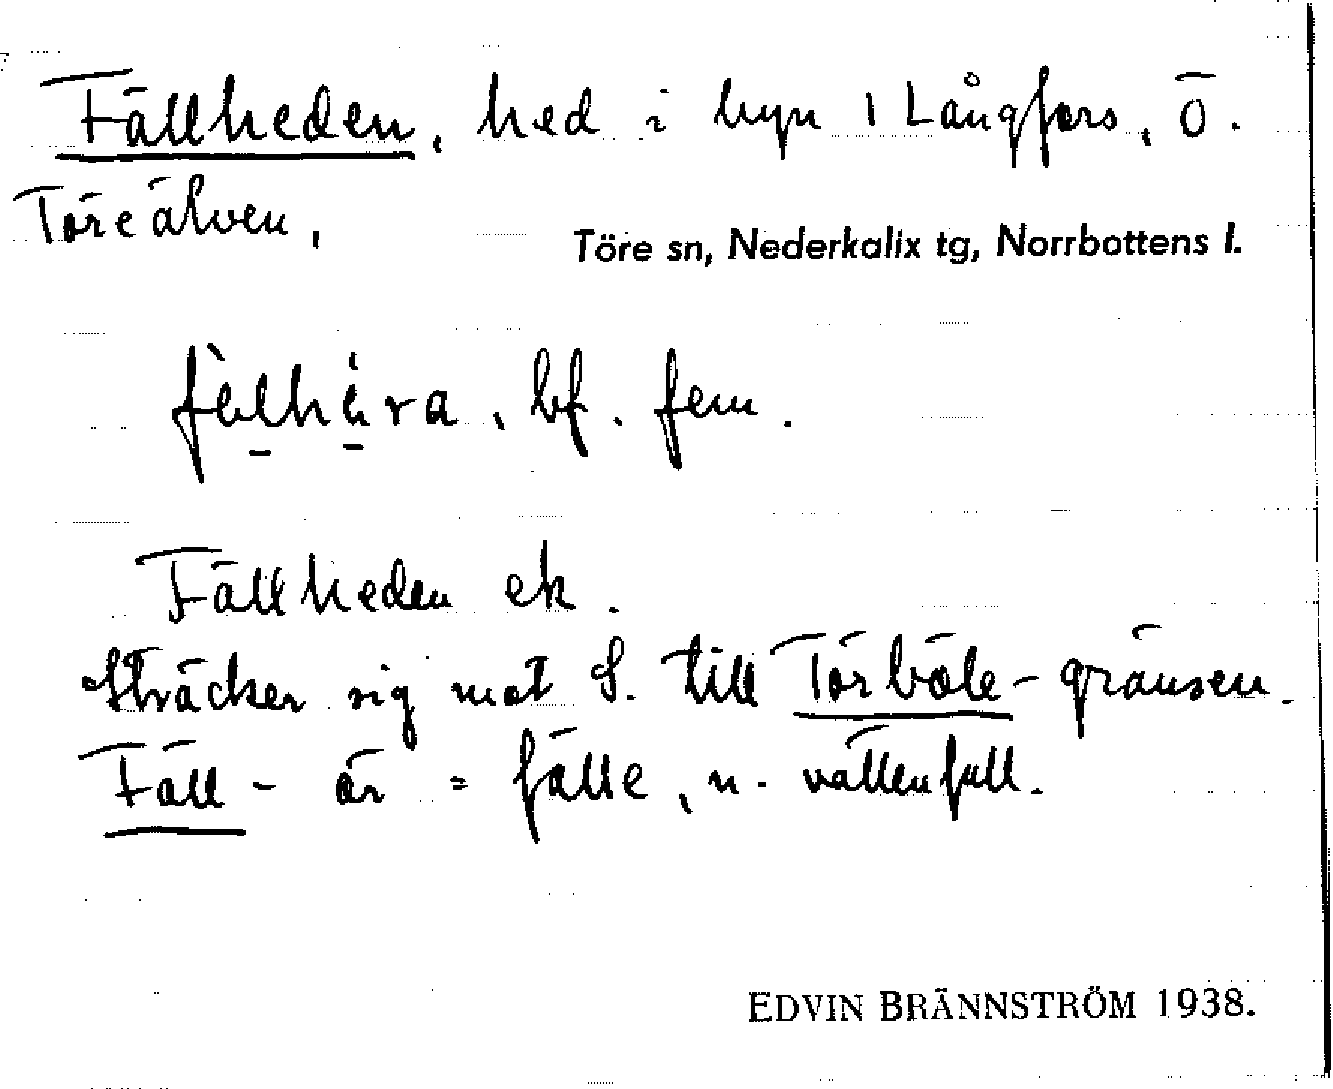 Fällheden, hed i byn 1 Långfors, Ö.
Töreälven,
Töre sn, Nederkalix tg, Norrbottens l.
bf. fem.
Fällheden ek.
Sträcker sig mot S. till Törböle-gränsen.
Fäll- är = fälle, n. vattenfall.
EDVIN BRÄNNSTRÖM 1938.